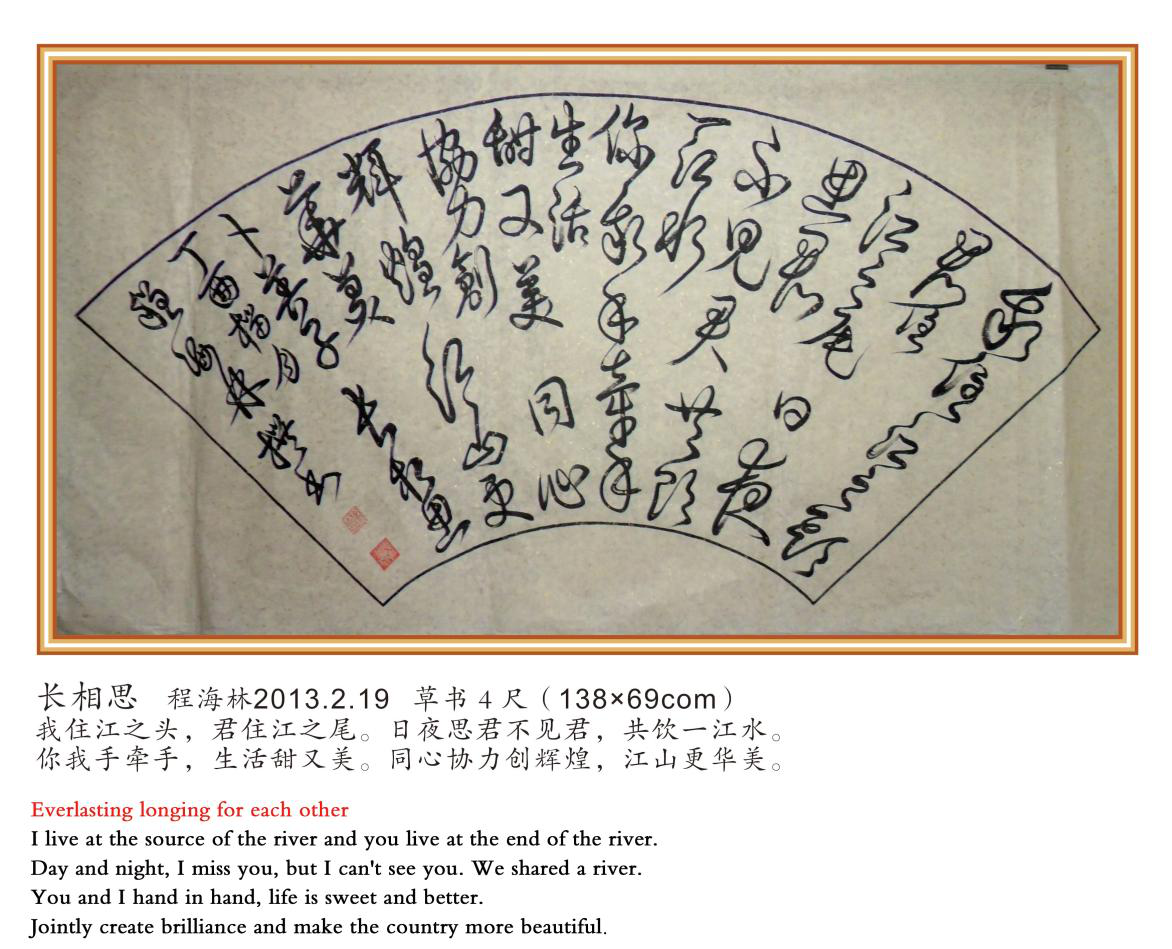 我住江之头
君住
江之尾日夜
思君
不见君共饮
一江水
你我手牵手
生活
甜又美同心
協力創
輝煌江山更
華美长相思
丁酉榴月
程海林撰书
长相思 程海林2013.2.19 草书 4 尺（138×69com）
我住江之头，君住江之尾。日夜思君不见君，共饮一江水。
你我手牵手，生活甜又美。同心协力创辉煌，江山更华美。
Everlasting longing for each other
I live at the source of the river and you live at the end of the river.
Day and night, I miss you, but I can't see you. We shared a river.
You and I hand in hand, life is sweet and better.
Jointly create brilliance and make the country more beautiful.